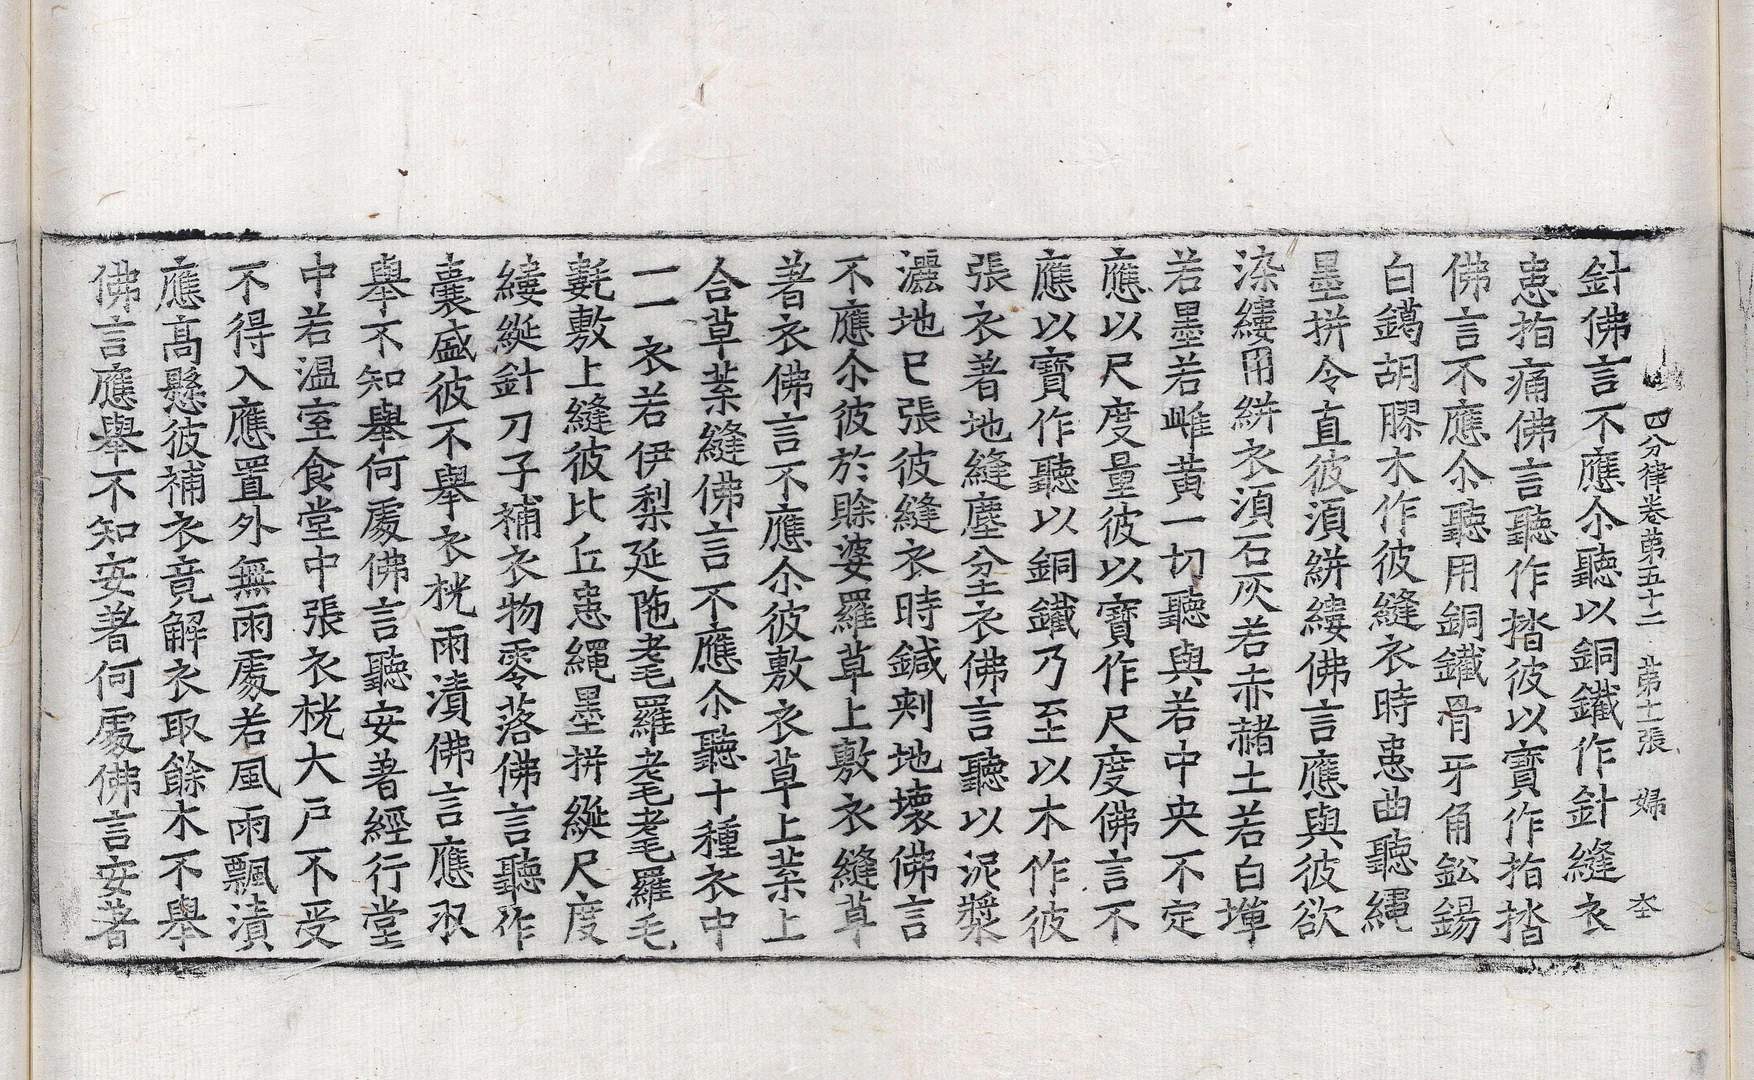 四分律卷苐五十二 苐十二張 婦
針佛言不應尒聽以銅鐵作針縫衣
患指痛佛言聽作揩彼以寶作指揩
佛言不應尒聽用銅鐵骨牙角鈆錫
白鑞胡膠木作彼縫衣時患曲聽繩
墨拼令直彼湏絣縷佛言應與彼欲
染縷用絣衣湏石灰若赤赭土若白墠
若墨若雌黃一切聽與若中央不定
應以尺度量彼以寶作尺度佛言不
應以寶作聽以銅鐵乃至以木作彼
張衣著地縫塵坌衣佛言聽以泥漿
灑地已張彼縫衣時鍼刾地壞佛言
不應尒彼於賒婆羅草上敷衣縫草
著衣佛言不應尒彼敷衣草上葉上
合草葉縫佛言不應尒聽十種衣中
一一衣若伊梨延陁耄羅耄耄羅毛
氀敷上縫彼比丘患繩墨拼綖尺度
縷綖針刀子補衣物零落佛言聽作
囊盛彼不舉衣桄雨漬佛言應収
舉不知舉何處佛言聽安著經行堂
中若温室食堂中張衣桄大戶不受
不得入應置外無雨處若風雨飄漬
應髙懸彼補衣竟解衣取餘木不舉
佛言應舉不知安著何處佛言安著